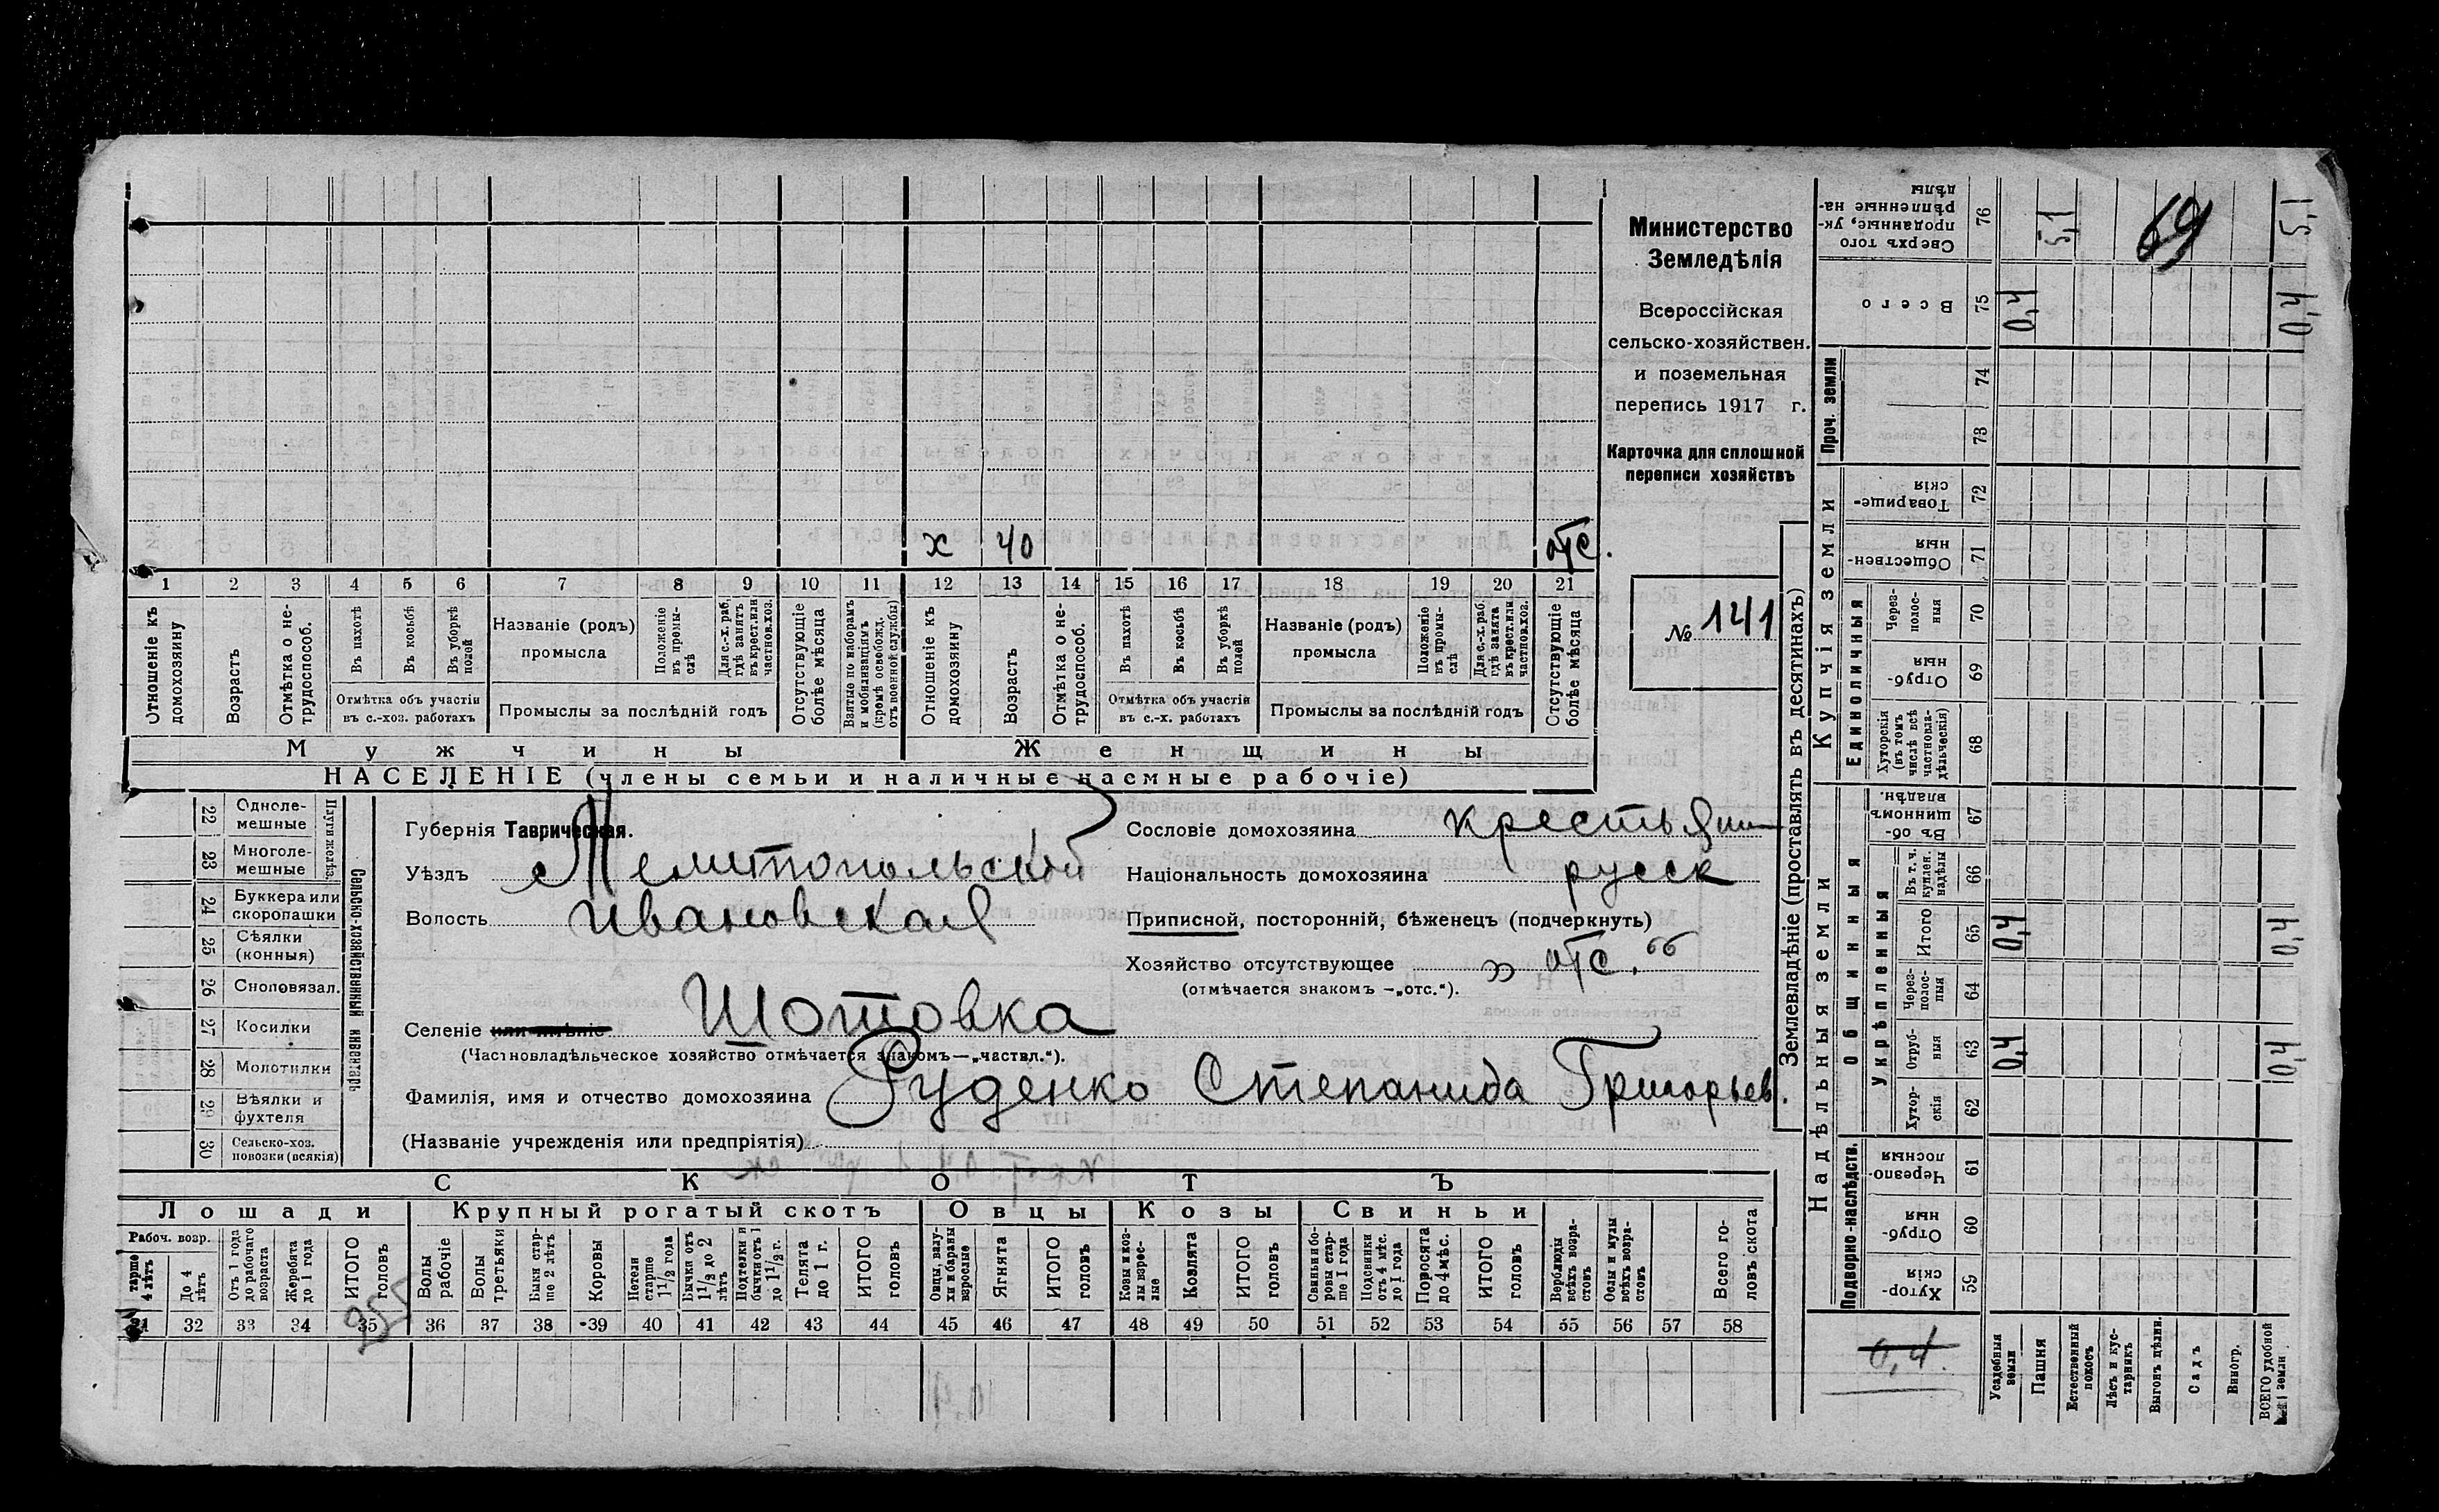 х 40 отс.
1 2 3 4 5 6 7 8 9 10 11 12 13 14 15 16 17 18 19 20 21
Отношеніе къ домохозяину
Возрастъ
Отмѣтка о не-трудоспособ.
Въ пахотѣ
Въ косьбѣ
Въ уборкѣ полей
Отмѣтка объ участіи въ с.-хоз. работахъ
Названіе (родъ) промысла
Положеніе въ промы-слѣ
Для с.-х. раб. гдѣ занятъ въ крест. или частнов. хоз.
Промыслы за послѣдній годъ
Отсутствующіе болѣе мѣсяца
Взятые по наборамъ и мобилизаціямъ (кромѣ освобожд. отъ военной службы)
Отношеніе къ домохозяину
Возрастъ
Отмѣтка о не-трудоспособ.
Въ пахотѣ
Въ косьбѣ
Въ уборкѣ полей
Отмѣтка объ участіи въ с.-х. работахъ
Названіе (родъ) промысла
Положеніе въ промы-слѣ
Для с.-х. раб. гдѣ занята въ крест. или частнов. хоз.
Промыслы за послѣдній годъ
Отсутствующіе болѣе мѣсяца
Мужчины Женщины
НАСЕЛЕНІЕ (члены семьи и наличные наемные рабочіе)
Министерство
Земледѣлія
Всероссійская
сельско-хозяйствен.
и поземельная
перепись 1917 г.
Карточка для сплошной
переписи хозяйствъ
№ 141
22 Одноле-мешные
23 Многоле-мешные
Плуги желѣз.
24 Буккера или скоропашки
25 Сѣялки (конныя)
26 Сноповязал.
27 Косилки
28 Молотилки
29 Вѣялки и фухтеля
30 Сельско-хоз. повозки (всякія)
Сельско-хозяйственный инвентарь
Губернія Таврическая.
Уѣздъ Мелитопольской
Волость Ивановская
Селеніе или имѣніе Шотовка
(Частновладѣльческое хозяйство отмѣчается знакомъ—„частвл.“).
Фамилія, имя и отчество домохозяина Руденко Степанида Григорьев.
(Названіе учрежденія или предпріятія)
Сословіе домохозяина крестьянин
Національность домохозяина русск
Приписной, посторонній, бѣженецъ (подчеркнуть)
Хозяйство отсутствующее „отс.“
(отмѣчается знакомъ —„отс.“).
СКОТЪ
Лошади Крупный рогатый скотъ Овцы Козы Свиньи
Рабоч. возр.
тарше 4 лѣтъ
До 4 лѣтъ
Отъ 1 года до рабочаго возраста
Жеребята до 1 года
ИТОГО головъ
Волы рабочіе
Волы третьяки
Быки стар-ше 2 лѣтъ
Коровы
Нетели старше 1 1/2 года
Бычки отъ 1 1/2 до 2 лѣтъ
Подтелки и бычки отъ 1 до 1 1/2 г.
Телята до 1 г.
ИТОГО головъ
Овцы, валу-хи и бараны взрослые
Ягнята
ИТОГО головъ
Козы и коз-лы взрос-лые
Козлята
ИТОГО головъ
Свиньи и бо-ровы стар-ше 1 года
Подсвинки отъ 4 мѣс. до 1 года
Поросята до 4 мѣс.
ИТОГО головъ
Верблюды всѣхъ возра-стовъ
Ослы и мулы всѣхъ возра-стовъ
Всего го-ловъ скота
31 32 33 34 35 36 37 38 39 40 41 42 43 44 45 46 47 48 49 50 51 52 53 54 55 56 57 58
355
Землевладѣніе (проставлять въ десятинахъ)
Надѣльныя земли Купчія земли Проч. земли
Подворно-наслѣдств. Общинныя Единоличныя
Укрѣпленныя
Хутор-скія 59
Отруб-ныя 60
Черезпо-лосныя 61
Хутор-скія 62
Отруб-ныя 63 0,4 0,4
Через-полос-ныя 64
Итого 65 0,4 0,4
Въ т. ч. куплен. надѣлы 66
Въ об-щинномъ владѣн. 67
Хуторскія (въ томъ числѣ всѣ частновла-дѣльческія) 68
Отруб-ныя 69
Через-полос-ныя 70
Обществен-ныя 71
Товарище-скія 72
73
74
Всего 75 0,4 0,4
Сверхъ того проданные, ук-рѣпленные на-дѣлы 76 5,1 5,1
69
0,4.
Усадебныя земли
Пашня
Естественный покосъ
Лѣсъ и кус-тарникъ
Выгонъ цѣлин.
Садъ
Виногр.
ВСЕГО удобной земли